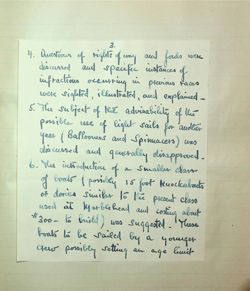 3.
4. Questions of rights of way and fouls were
discussed and specific instances of
infractions occurring in previous races
were sighted, illustrated, and explained.
5. The subject of the advisability of the
possible use of light sails for another
year (Balloons and Spinnacers) was
discussed and generally disapproved.
6. The introduction of a smaller class
of boats (possibly 15 foot knockabouts
or dories similar to the present class
used at Marblehead and costing about
$200- to build) was suggested. These
boats to be sailed by a younger
crew possibly setting an age limit